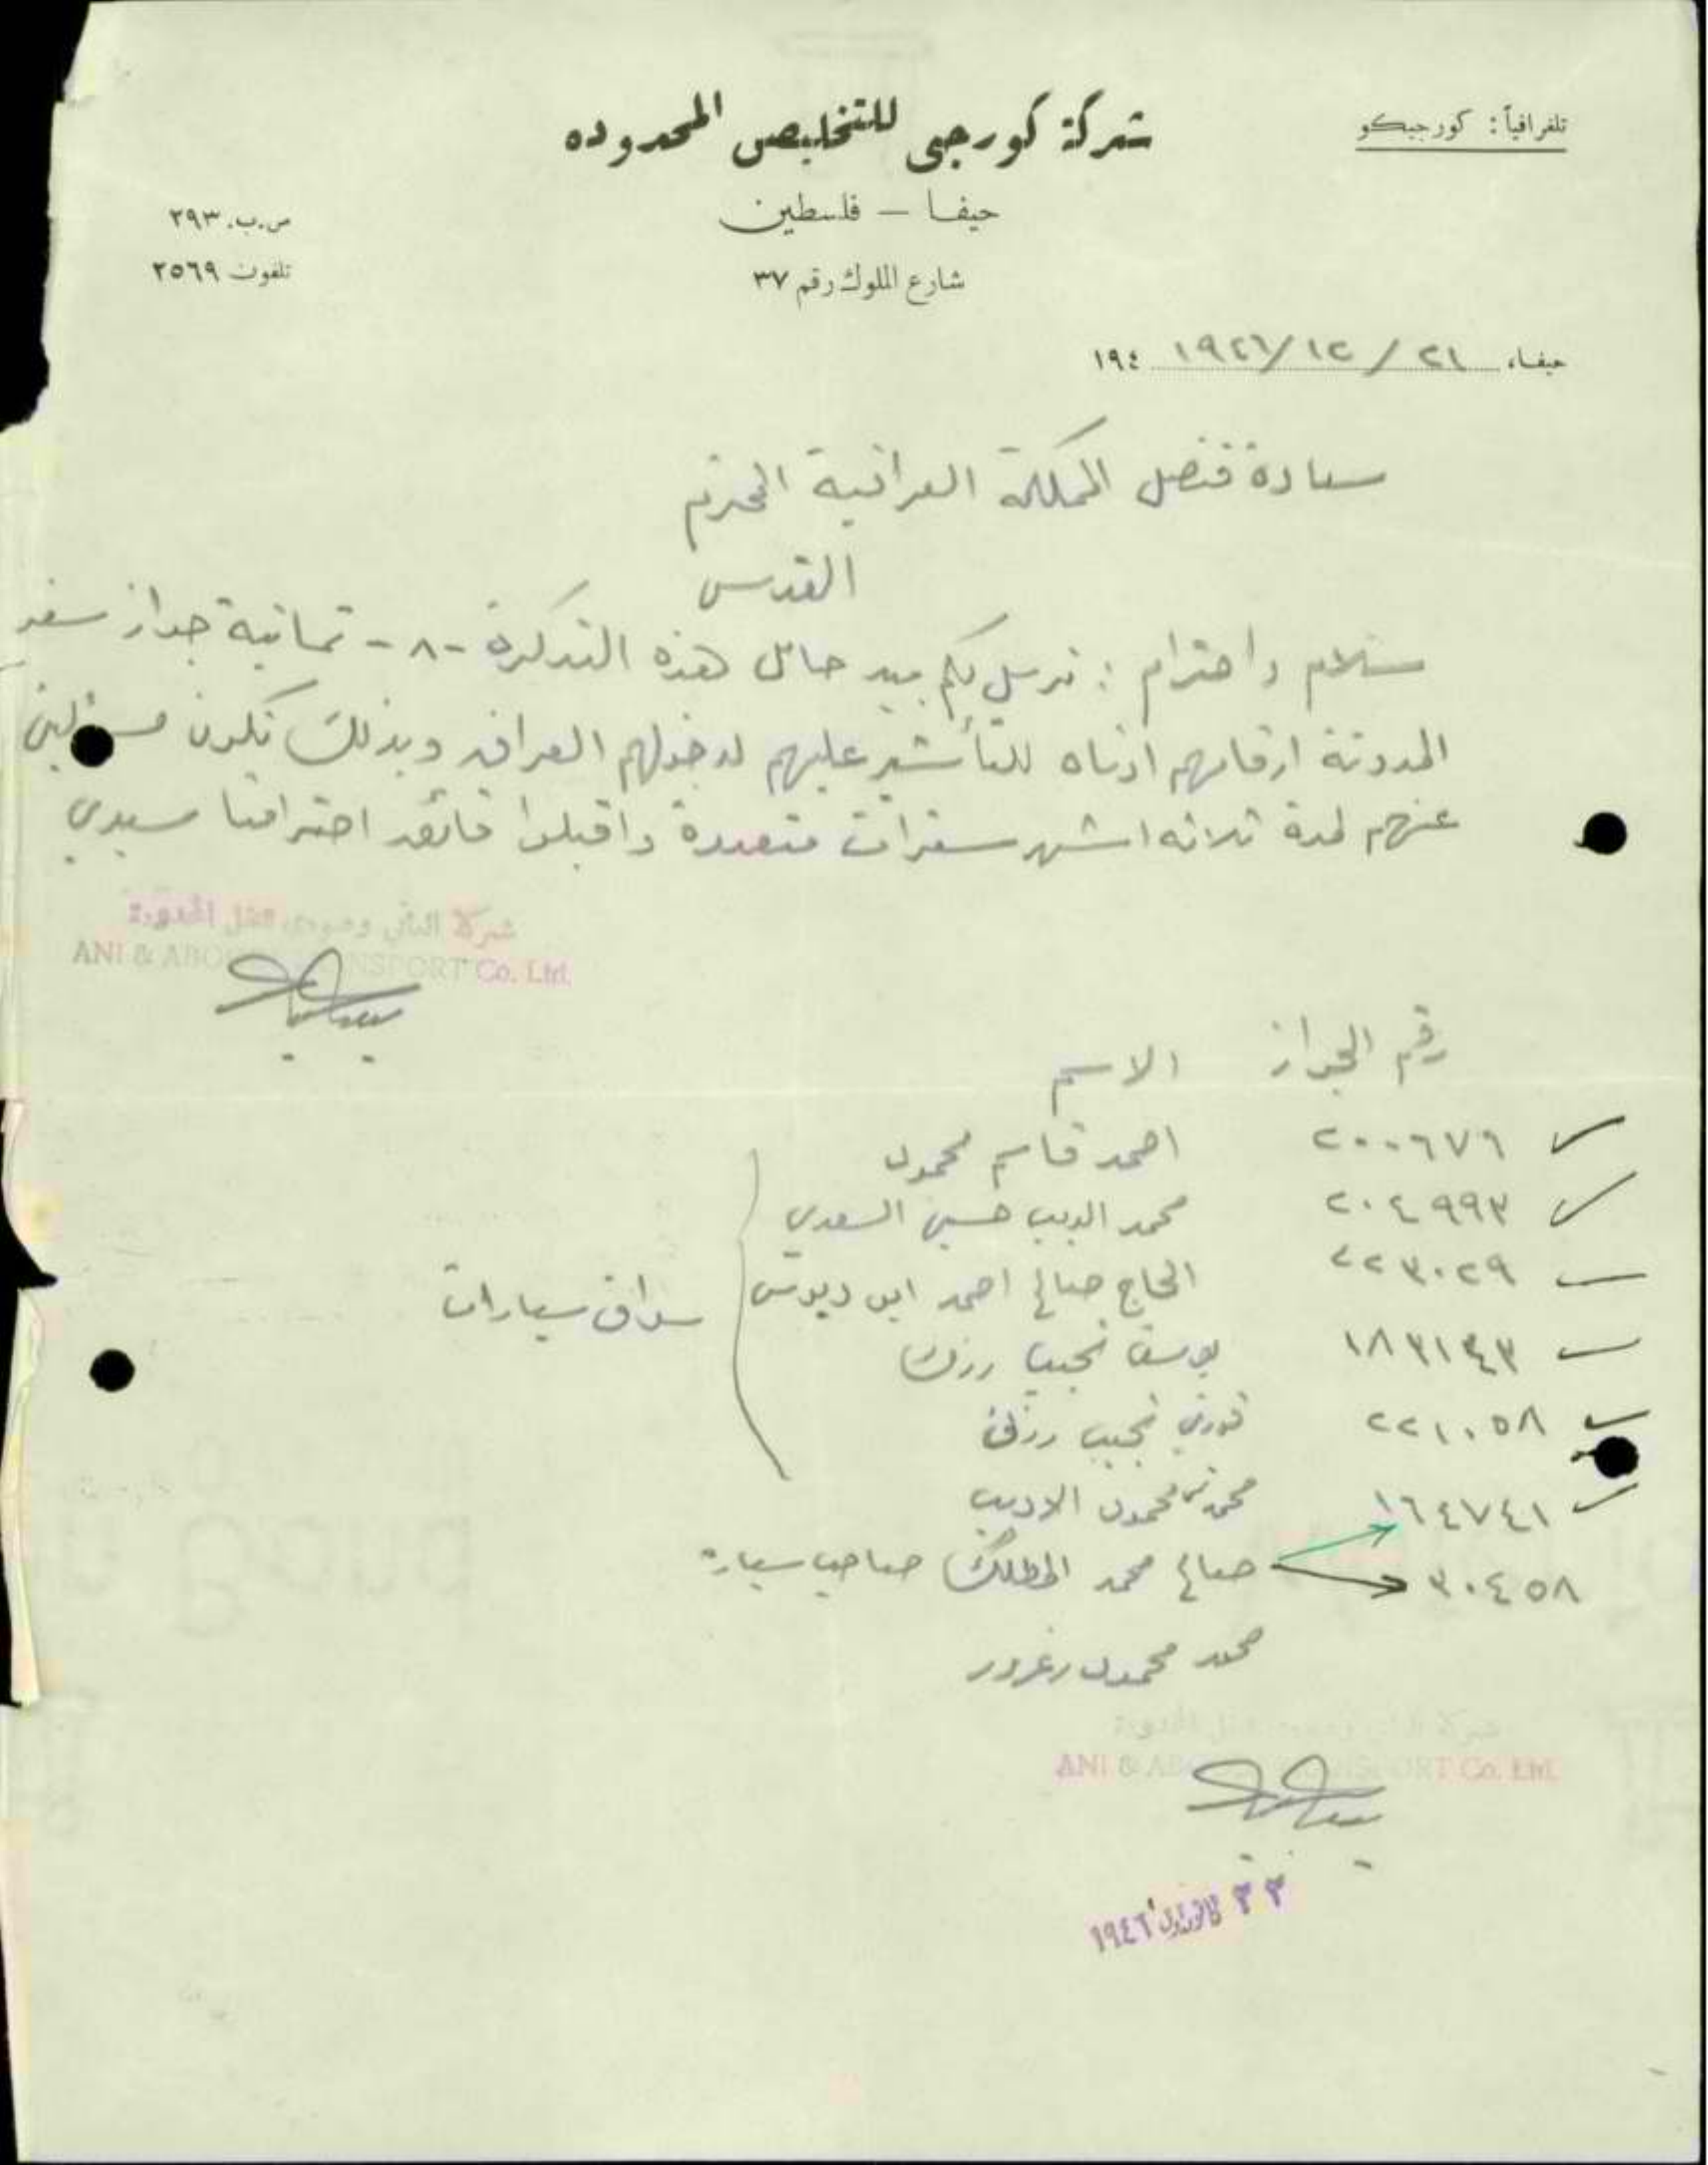 تلغرافياً: كورجيكو
شركة كورجي للتخليص المحدوده
حيفا – فلسطين
ص.ب. ٢٩٣
شارع الملوك رقم ٣٧
تلفون ٢٥٦٩
حيفا، ٢١ / ١٢ / ١٩٤٦ ١٩٤
سعادة قنصل المملكة العراقية المحترم
القدس
سلام واحترام : نرسل لكم بيد حامل هذه التذكرة -٨- ثمانية جواز سفر
المدونة ارقامهم ادناه للتأشير عليهم لدخولهم العراق وبذلك نكون مسؤلين
عنهم لمدة ثلاثه اشهر سفرات متعددة واقبلوا فائق احترامنا سيدي
شركة النقل المحدودة
ANI & ABO NSPORT Co. Ltd.
رقم الجواز الاسم
٢٠٠٦٧٦ احمد قاسم محمود
٢٠٤٩٩٣ محمد الديب حسين السعدي
٢٢٣٠٢٩ الحاج صالح احمد ابو ديوس
سواق سيارات
١٨٣١٤٣ يوسف نجيب رزق
٢٢١٠٥٨ فوزي نجيب رزق
١٦٤٧٤١ محمد محمود الاديب
٣٠٤٥٨ صالح محمد المطلك صاحب سيارة
محمد محمود زعرور
ANI & AB NSPORT Co. Ltd.
٢٣ كانون اول ١٩٤٦